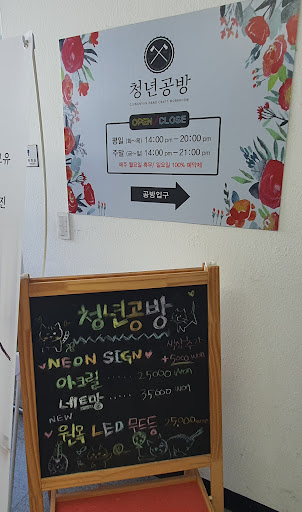 청년공방
OPEN / CLOSE
평일 (화~목) 14:00 pm ~ 20:00 pm
주말 (금~일) 14:00 pm ~ 21:00 pm
매주 월요일 휴무/ 일요일 100% 예약제
공방입구
유
진
청년공방
NEON SIGN
색상추가
+5000 won
아크릴 ..... 25000 won
네트망 ..... 35000 won
NEW
원목 LED 무드등 25,000won